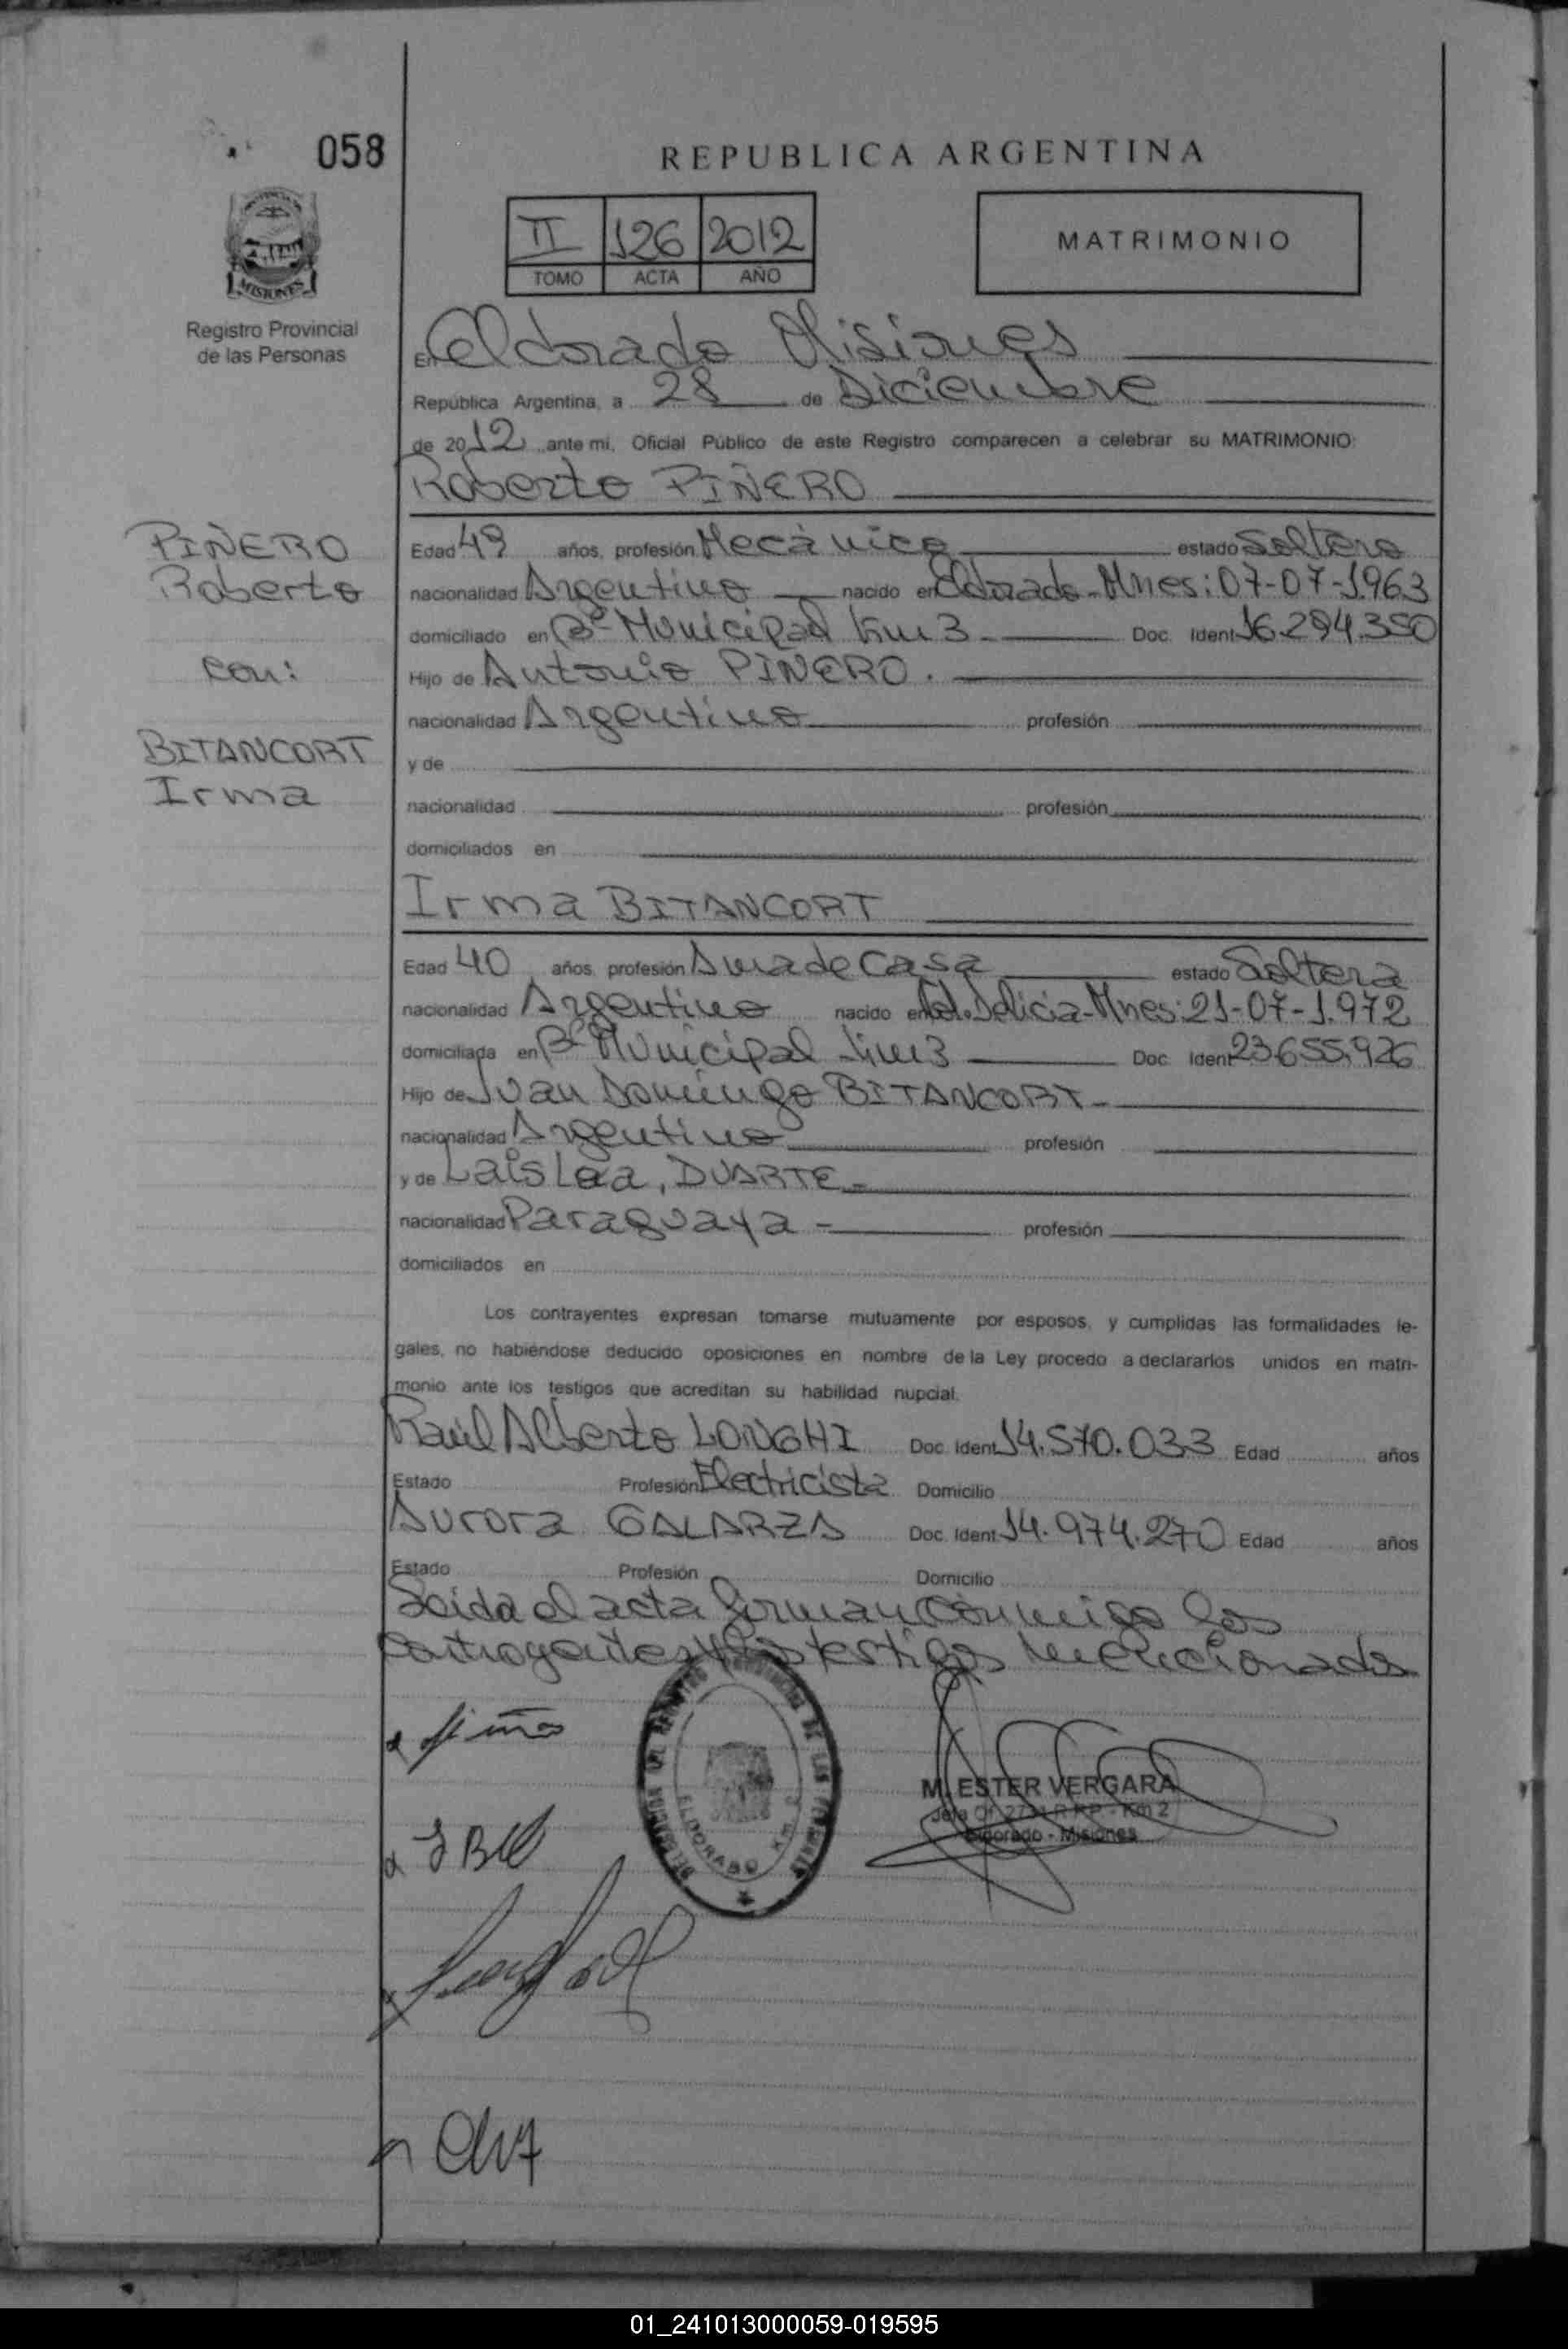 058
REPUBLICA ARGENTINA
II 126 2012
TOMO ACTA AÑO
MATRIMONIO
MISIONES
Registro Provincial
de las Personas
En Eldorado Misiones
República Argentina, a 28 de Diciembre
de 2012 ante mi, Oficial Público de este Registro comparecen a celebrar su MATRIMONIO:
Roberto PIÑERO
PIÑERO
Roberto
con:
BITANCORT
Irma
Edad 49 años, profesión Mecánico estado Soltero
nacionalidad Argentino nacido en Eldorado-Mnes: 07-07-1.963
domiciliado en Bº Municipal Km 3 Doc. Ident 16.294.350
Hijo de Antonio PIÑERO.
nacionalidad Argentino profesión
y de
nacionalidad profesión
domiciliados en
Irma BITANCORT
Edad 40 años, profesión Ama de Casa estado Soltera
nacionalidad Argentino nacido en Col. Delicia-Mnes: 21-07-1.972
domiciliada en Bº Municipal Km 3 Doc. Ident 23.655.926
Hijo de Juan Domingo BITANCORT-
nacionalidad Argentino profesión
y de DUARTE-
nacionalidad Paraguaya - profesión
domiciliados en
Los contrayentes expresan tomarse mutuamente por esposos, y cumplidas las formalidades le-
gales, no habiéndose deducido oposiciones en nombre de la Ley procedo a declararlos unidos en matri-
monio ante los testigos que acreditan su habilidad nupcial.
Raúl Alberto LONGHI Doc. Ident 14.570.033 Edad años
Estado Profesión Electricista Domicilio
Aurora GALARZA Doc. Ident 14.974.270 Edad años
Estado Profesión Domicilio
Leida el acta firman conmigo los
contrayentes y los testigos mencionados
M. ESTER VERGARA
Jefa Of. 2731 R.P.P. - Km 2
Eldorado - Misiones
ELDORADO
01_241013000059-019595